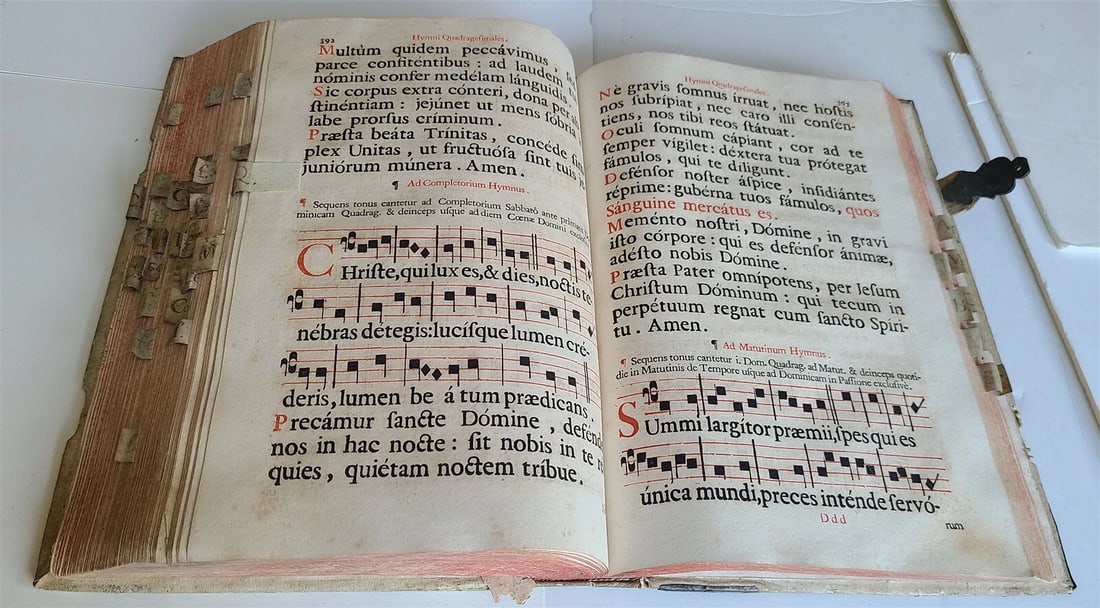 392
Hymni Quadragesimales.
Multùm quidem peccávimus,
parce confiténtibus : ad laudem
nóminis confer medélam lánguidis.
Sic corpus extra cónteri, dona per
ſtinéntiam : jejúnet ut mens ſóbria
labe prorſus críminum.
Præſta beáta Trínitas, concéde
plex Unitas, ut fructuóſa ſint tuis
juniórum múnera. Amen.
¶ Ad Completorium Hymnus.
¶ Sequens tonus cantetur ad Completorium Sabbatô ante primam
minicam Quadrag. & deinceps uſque ad diem Cœnæ Domini
CHriſte, qui lux es, & dies, noctis te
nébras détegis: lucíſque lumen cré-
deris, lumen be á tum prædicans.
Precámur ſancte Dómine,
nos in hac nocte : ſit nobis in te
quies, quiétam noctem tríbue.
Hymni Quadrageſimales.
Nè gravis ſomnus írruat, nec hoſtis
nos ſubrípiat, nec caro illi conſén-
tiens, nos tibi reos ſtátuat.
Oculi ſomnum cápiant, cor ad te
ſemper vígilet: déxtera tua prótegat
fámulos, qui te díligunt.
Defénſor noſter áſpice, inſidiántes
réprime: gubérna tuos fámulos, quos
Sánguine mercátus es.
Meménto noſtri, Dómine, in gravi
iſto córpore : qui es defénſor ánimæ,
adéſto nobis Dómine.
Præſta Pater omnípotens, per Jeſum
Chriſtum Dóminum : qui tecum in
perpétuum regnat cum ſancto Spíri-
tu. Amen.
¶ Ad Matutinum Hymnus.
¶ Sequens tonus cantetur i. Dom. Quadrag. ad Matut. & deinceps quoti-
die in Matutinis de Tempore uſque ad Dominicam in Paſſione excluſivè.
SUmmi largítor præmii, ſpes qui es
única mundi, preces inténde ſervó-
Ddd
rum